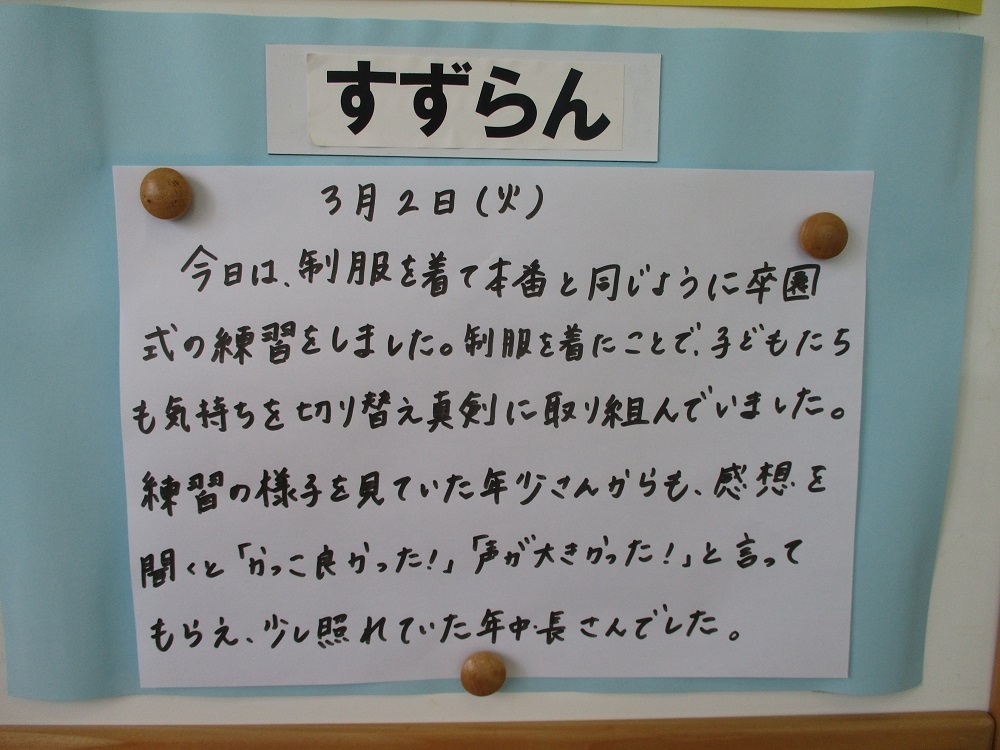 すずらん
3月2日(火)
今日は、制服を着て本番と同じように卒園
式の練習をしました。制服を着たことで、子どもたち
も気持ちを切り替え真剣に取り組んでいました。
練習の様子を見ていた年少さんからも、感想を
聞くと「かっこ良かった!」「声が大きかった!」と言って
もらえ、少し照れていた年中・長さんでした。